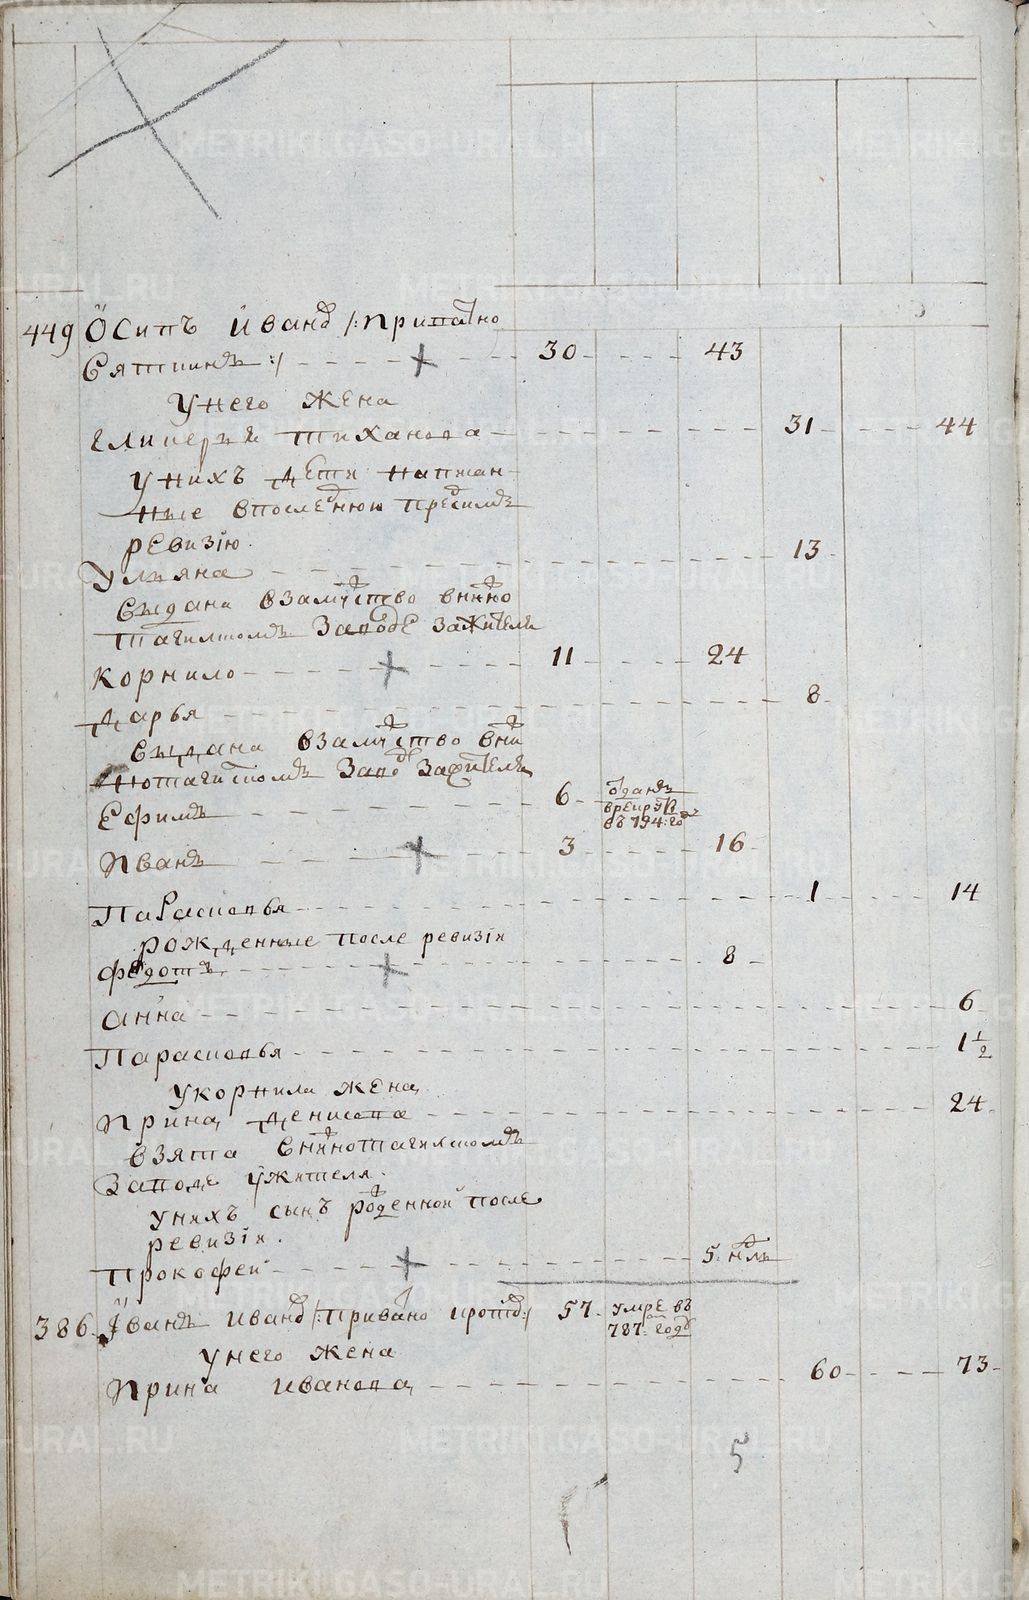 449 Осипъ Ивановъ /:приписано
Сятнинъ:/ 30 43
У него жена
Гликерья Тиханова 31 44
У нихъ дети написан
ные в последнюю пред симъ
ревизiю.
Ульяна 13
Выдана в замужство в нижно
тагилскомъ заводе за жителя
Корнило 11 24
Дарья 8
Выдана в замужство в ни
жнотагилскомъ заводе за жителя
Ефимъ 6 отданъ
в рекруты
въ 794: году
Иванъ 3 16
Парасковья 1 14
рожденные после ревизiи
Федотъ 8
Анна 6
Парасковья 1 1/2
У Корнила жена
Ирина Денисова 24
взята в нижнотагилскомъ
заводе у жителя.
У нихъ сынъ рожденной после
ревизiи.
Прокофей 5. ндль
386 Iванъ Ивановъ 57 умре въ
787. году
У него жена
Ирина Иванова 60 73
5
METRIKI.GASO-URAL.RU